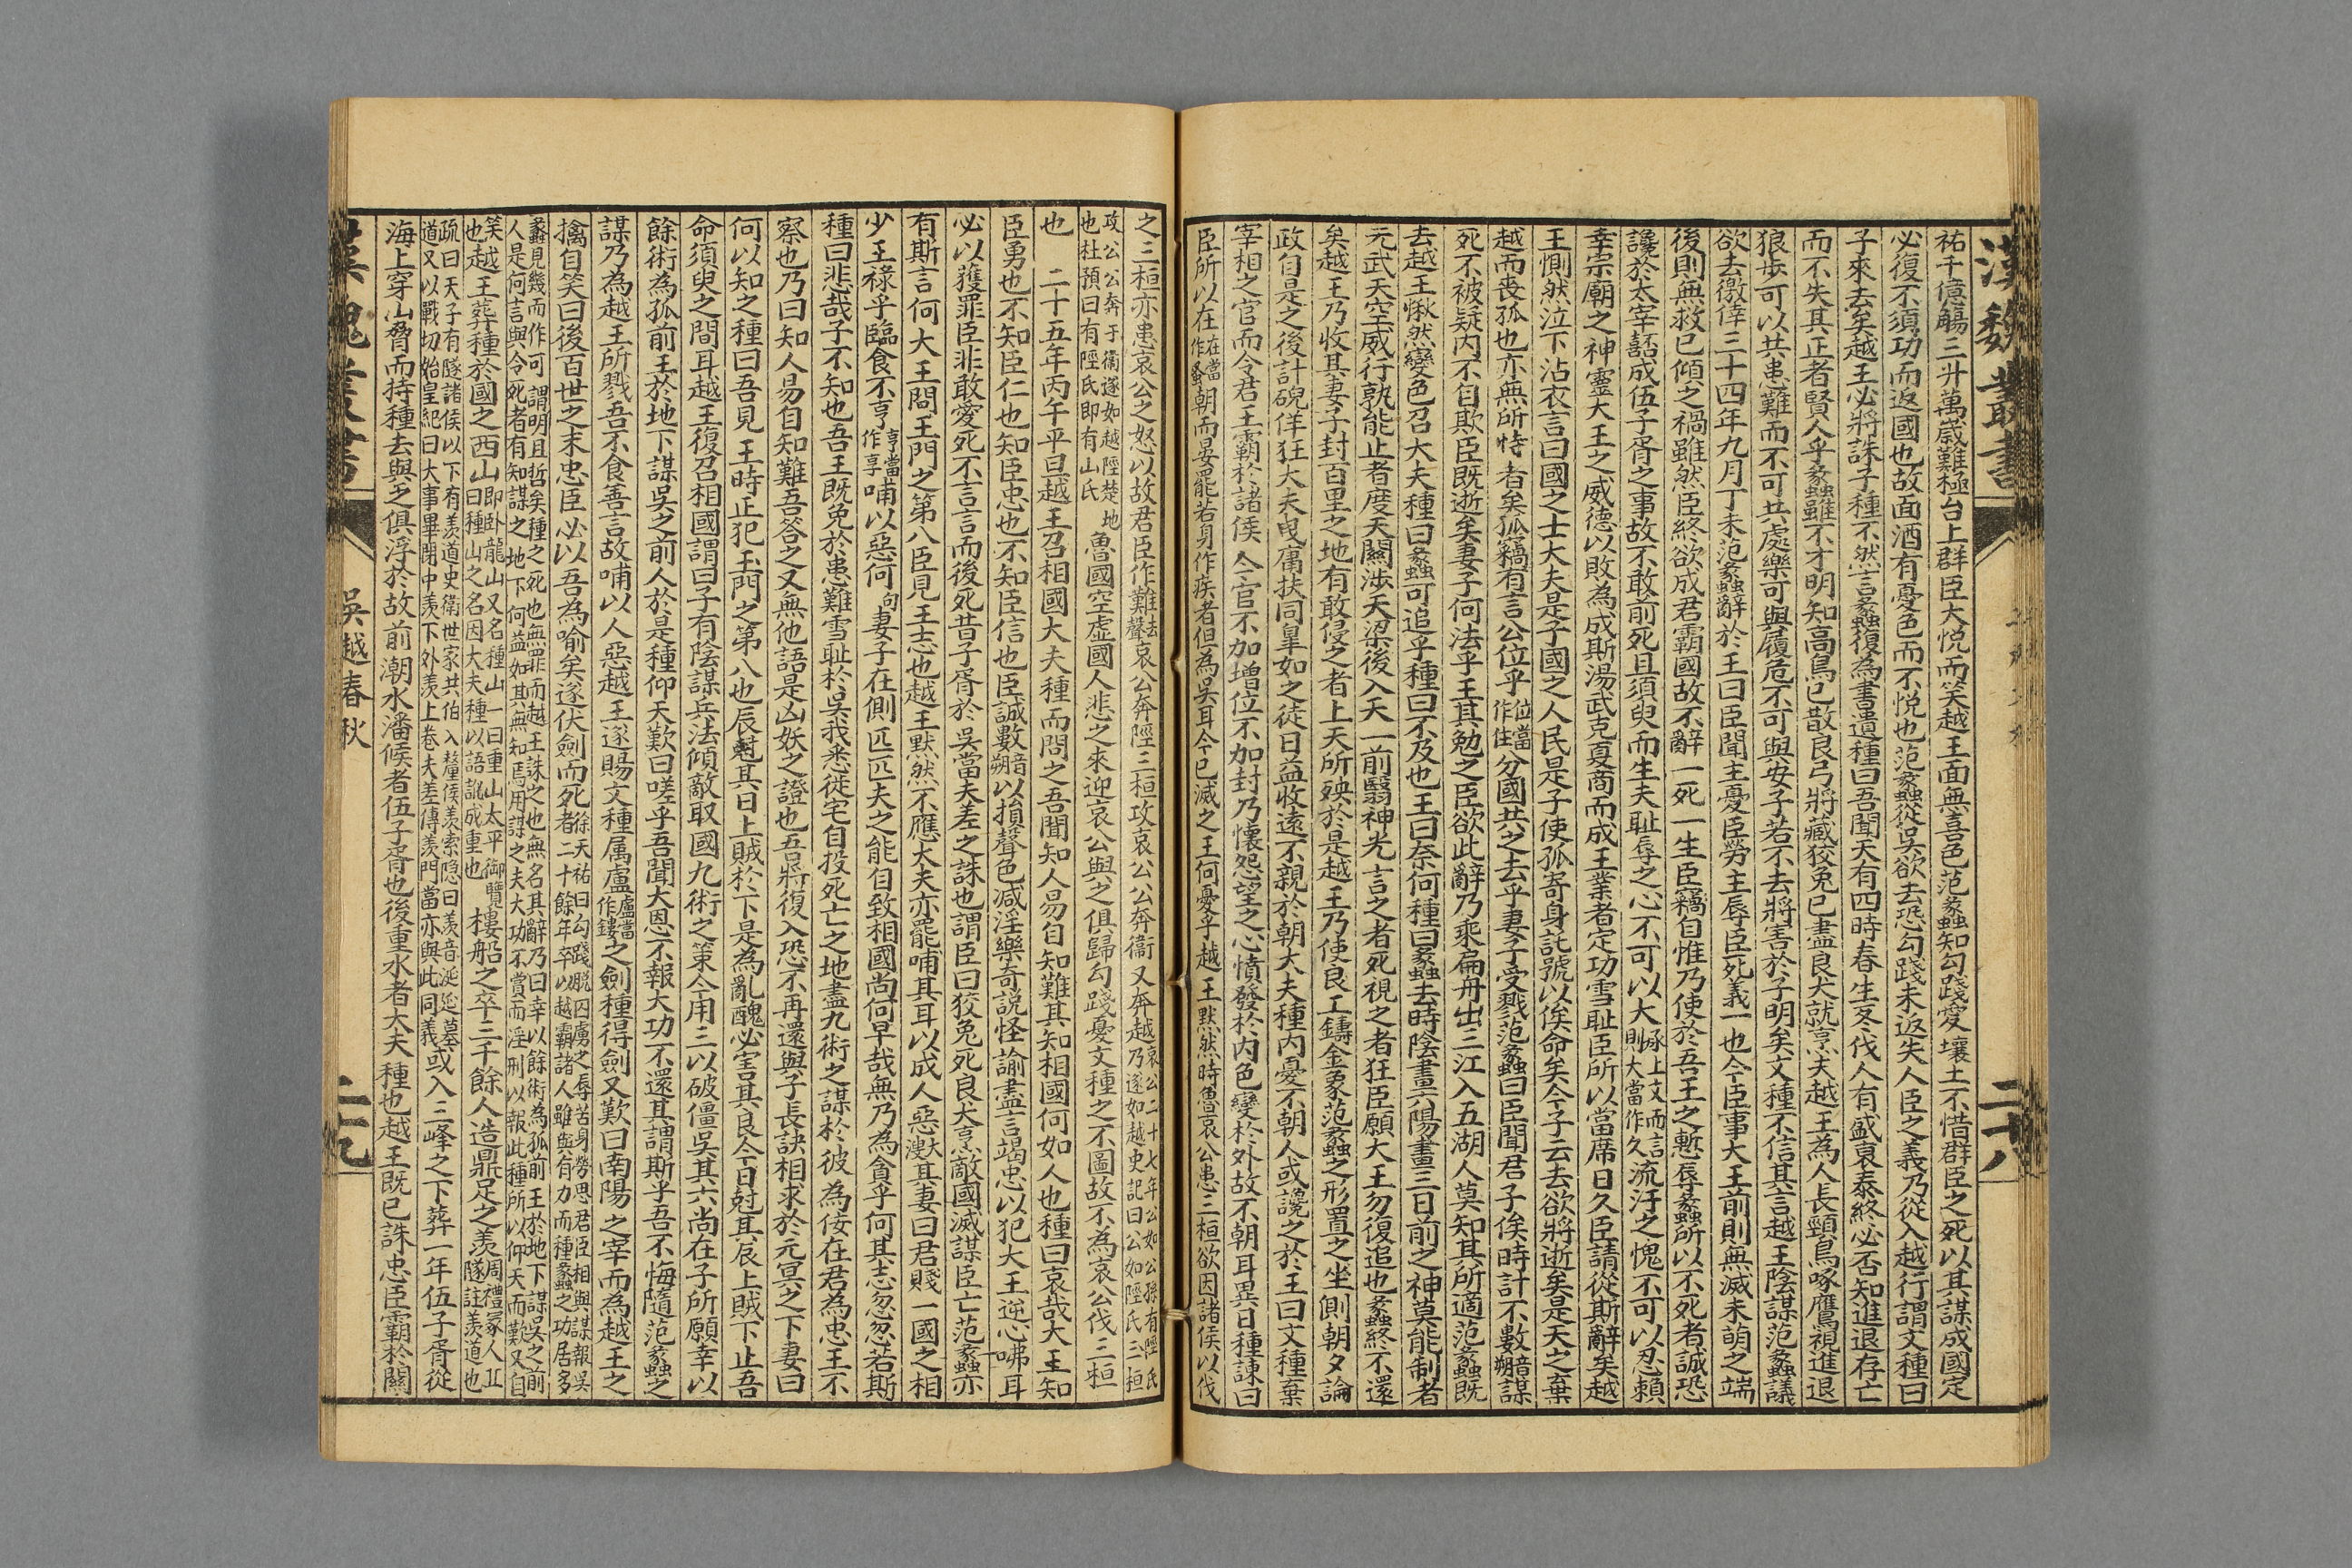 漢魏叢書
二十八
祐千億觴三升萬歲難極台上群臣大悅而笑越王面無喜色范蠡知勾踐愛壤土不惜群臣之死以其謀成國定
必復不須功而返國也故面酒有憂色而不悅也范蠡從吳欲去恐勾踐未返失人臣之義乃從入越行謂文種曰
子來去矣越王必將誅子種不然言蠡復為書遺種曰吾聞天有四時春生冬伐人有盛衰泰終必否知進退存亡
而不失其正者賢人乎蠡雖不才明知高鳥已散良弓將藏狡兔已盡良犬就烹夫越王為人長頸鳥啄鷹視進退
狼步可以共患難而不可共處樂可與履危不可與安子若不去將害於子明矣文種不信其言越王陰謀范蠡議
欲去徼倖二十四年九月丁未范蠡辭於王曰臣聞主憂臣勞主辱臣死義一也今臣事大王前則無滅未萌之端
後則無救已傾之禍雖然臣終欲成君霸國故不辭一死一生臣竊自惟乃使於吾王之慙辱蠡所以不死者誠恐
讒於太宰嚭成伍子胥之事故不敢前死且須臾而生夫耻辱之心不可以大承上文而言則大當作久流汗之愧不可以忍賴
幸宗廟之神靈大王之威德以敗為成斯湯武克夏商而成王業者定功雪耻臣所以當席日久臣請從斯辭矣越
王惻然泣下沾衣言曰國之士大夫是子國之人民是子使孤寄身託號以俟命矣今子云去欲將逝矣是天之棄
越而喪孤也亦無所恃者矣孤竊有言公位乎位當作住分國共之去乎妻子受戮范蠡曰臣聞君子俟時計不數音朔謀
死不被疑內不自欺臣既逝矣妻子何法乎王其勉之臣欲此辭乃乘扁舟出三江入五湖人莫知其所適范蠡既
去越王愀然變色召大夫種曰蠡可追乎種曰不及也王曰奈何種曰蠡去時陰畫六陽畫三日前之神莫能制者
元武天空威行孰能止者度天關涉天梁後入天一前翳神光言之者死視之者狂臣願大王勿復追也蠡終不還
矣越王乃收其妻子封百里之地有敢侵之者上天所殃於是越王乃使良工鑄金象范蠡之形置之坐側朝夕論
政自是之後計硯佯狂大夫曳庸扶同皐如之徒日益收遠不親於朝大夫種內憂不朝人或讒之於王曰文種棄
宰相之官而令君王霸於諸侯今官不加增位不加封乃懷怨望之心憤發於內色變於外故不朝耳異日種諫曰
臣所以在在當作蚤朝而晏罷若身作疾者但為吳耳今已滅之王何憂乎越王默然時魯哀公患三桓欲因諸侯以伐
之三桓亦患哀公之怒以故君臣作難去聲哀公奔陘三桓攻哀公公奔衞又奔越哀公二十七年公如公孫有陘氏乃遂如越史記曰公如陘氏三桓
攻公公奔于衞遂如越陘楚地也杜預曰有陘氏即有山氏魯國空虛國人悲之來迎哀公與之俱歸勾踐憂文種之不圖故不為哀公伐三桓
也　二十五年丙午平旦越王召相國大夫種而問之吾聞知人易自知難其知相國何如人也種曰哀哉大王知
臣勇也不知臣仁也知臣忠也不知臣信也臣誠數音朔以損聲色減淫樂奇說怪諭盡言竭忠以犯大王逆心咈耳
必以獲罪臣非敢愛死不言言而後死昔子胥於吳當夫差之誅也謂臣曰狡兔死良犬烹敵國滅謀臣亡范蠡亦
有斯言何大王問玉門之第八臣見王志也越王默然不應大夫亦罷哺其耳以成人惡大溲其妻曰君賤一國之相
少王祿乎臨食不亨亨當作享哺以惡何句妻子在側匹匹夫之能自致相國尚何早哉無乃為貪乎何其志忽忽若斯
種曰悲哉子不知也吾王既免於患難雪耻於吳我悉徙宅自投死亡之地盡九術之謀於彼為佞在君為忠王不
察也乃曰知人易自知難吾答之又無他語是凶妖之證也吾將復入恐不再還與子長訣相求於元冥之下妻曰
何以知之種曰吾見王時正犯玉門之第八也辰尅其日上賊於下是為亂醜必害其良今日尅其辰上賊下止吾
命須臾之間耳越王復召相國謂曰子有陰謀兵法傾敵取國九術之策今用三以破彊吳其六尚在子所願幸以
餘術為孤前王於地下謀吳之前人於是種仰天歎曰嗟乎吾聞大恩不報大功不還其謂斯乎吾不悔隨范蠡之
謀乃為越王所戮吾不食善言故哺以人惡越王遂賜文種属盧盧當作鏤之劍種得劍又歎曰南陽之宰而為越王之
擒自笑曰後百世之末忠臣必以吾為喻矣遂伏劍而死徐天祜曰勾踐脱囚虜之辱苦身勞思君臣相與謀報吳者二十餘年卒以越霸諸人雖與有力而種蠡之功居多
蠡見幾而作可謂明且哲矣種之死也無罪而越王誅之也無名其辭乃曰幸以餘術為孤前王於地下謀吳之前人是何言與令死者有知謀之地下何益如其無知焉用謀之夫大功不賞而淫刑以報此種所以仰天而歎又自
笑也越王葬種於國之西山即卧龍山又名種山一曰重山太平御覽曰種山之名因大夫種以語訛成重也樓船之卒三千餘人造鼎足之羨周禮冢人丘隧註羨道也
疏曰天子有隧諸侯以下有羨道史衛世家共伯入釐侯羨索隱曰羨音延延墓道又以戰切始皇紀曰大事畢閉中羨下外羨上卷夫差傳羨門當亦與此同義或入三峰之下葬一年伍子胥從
海上穿山脅而持種去與之俱浮於故前潮水潘候者伍子胥也後重水者大夫種也越王既已誅忠臣霸於關
漢魏叢書
吳越春秋
二十九